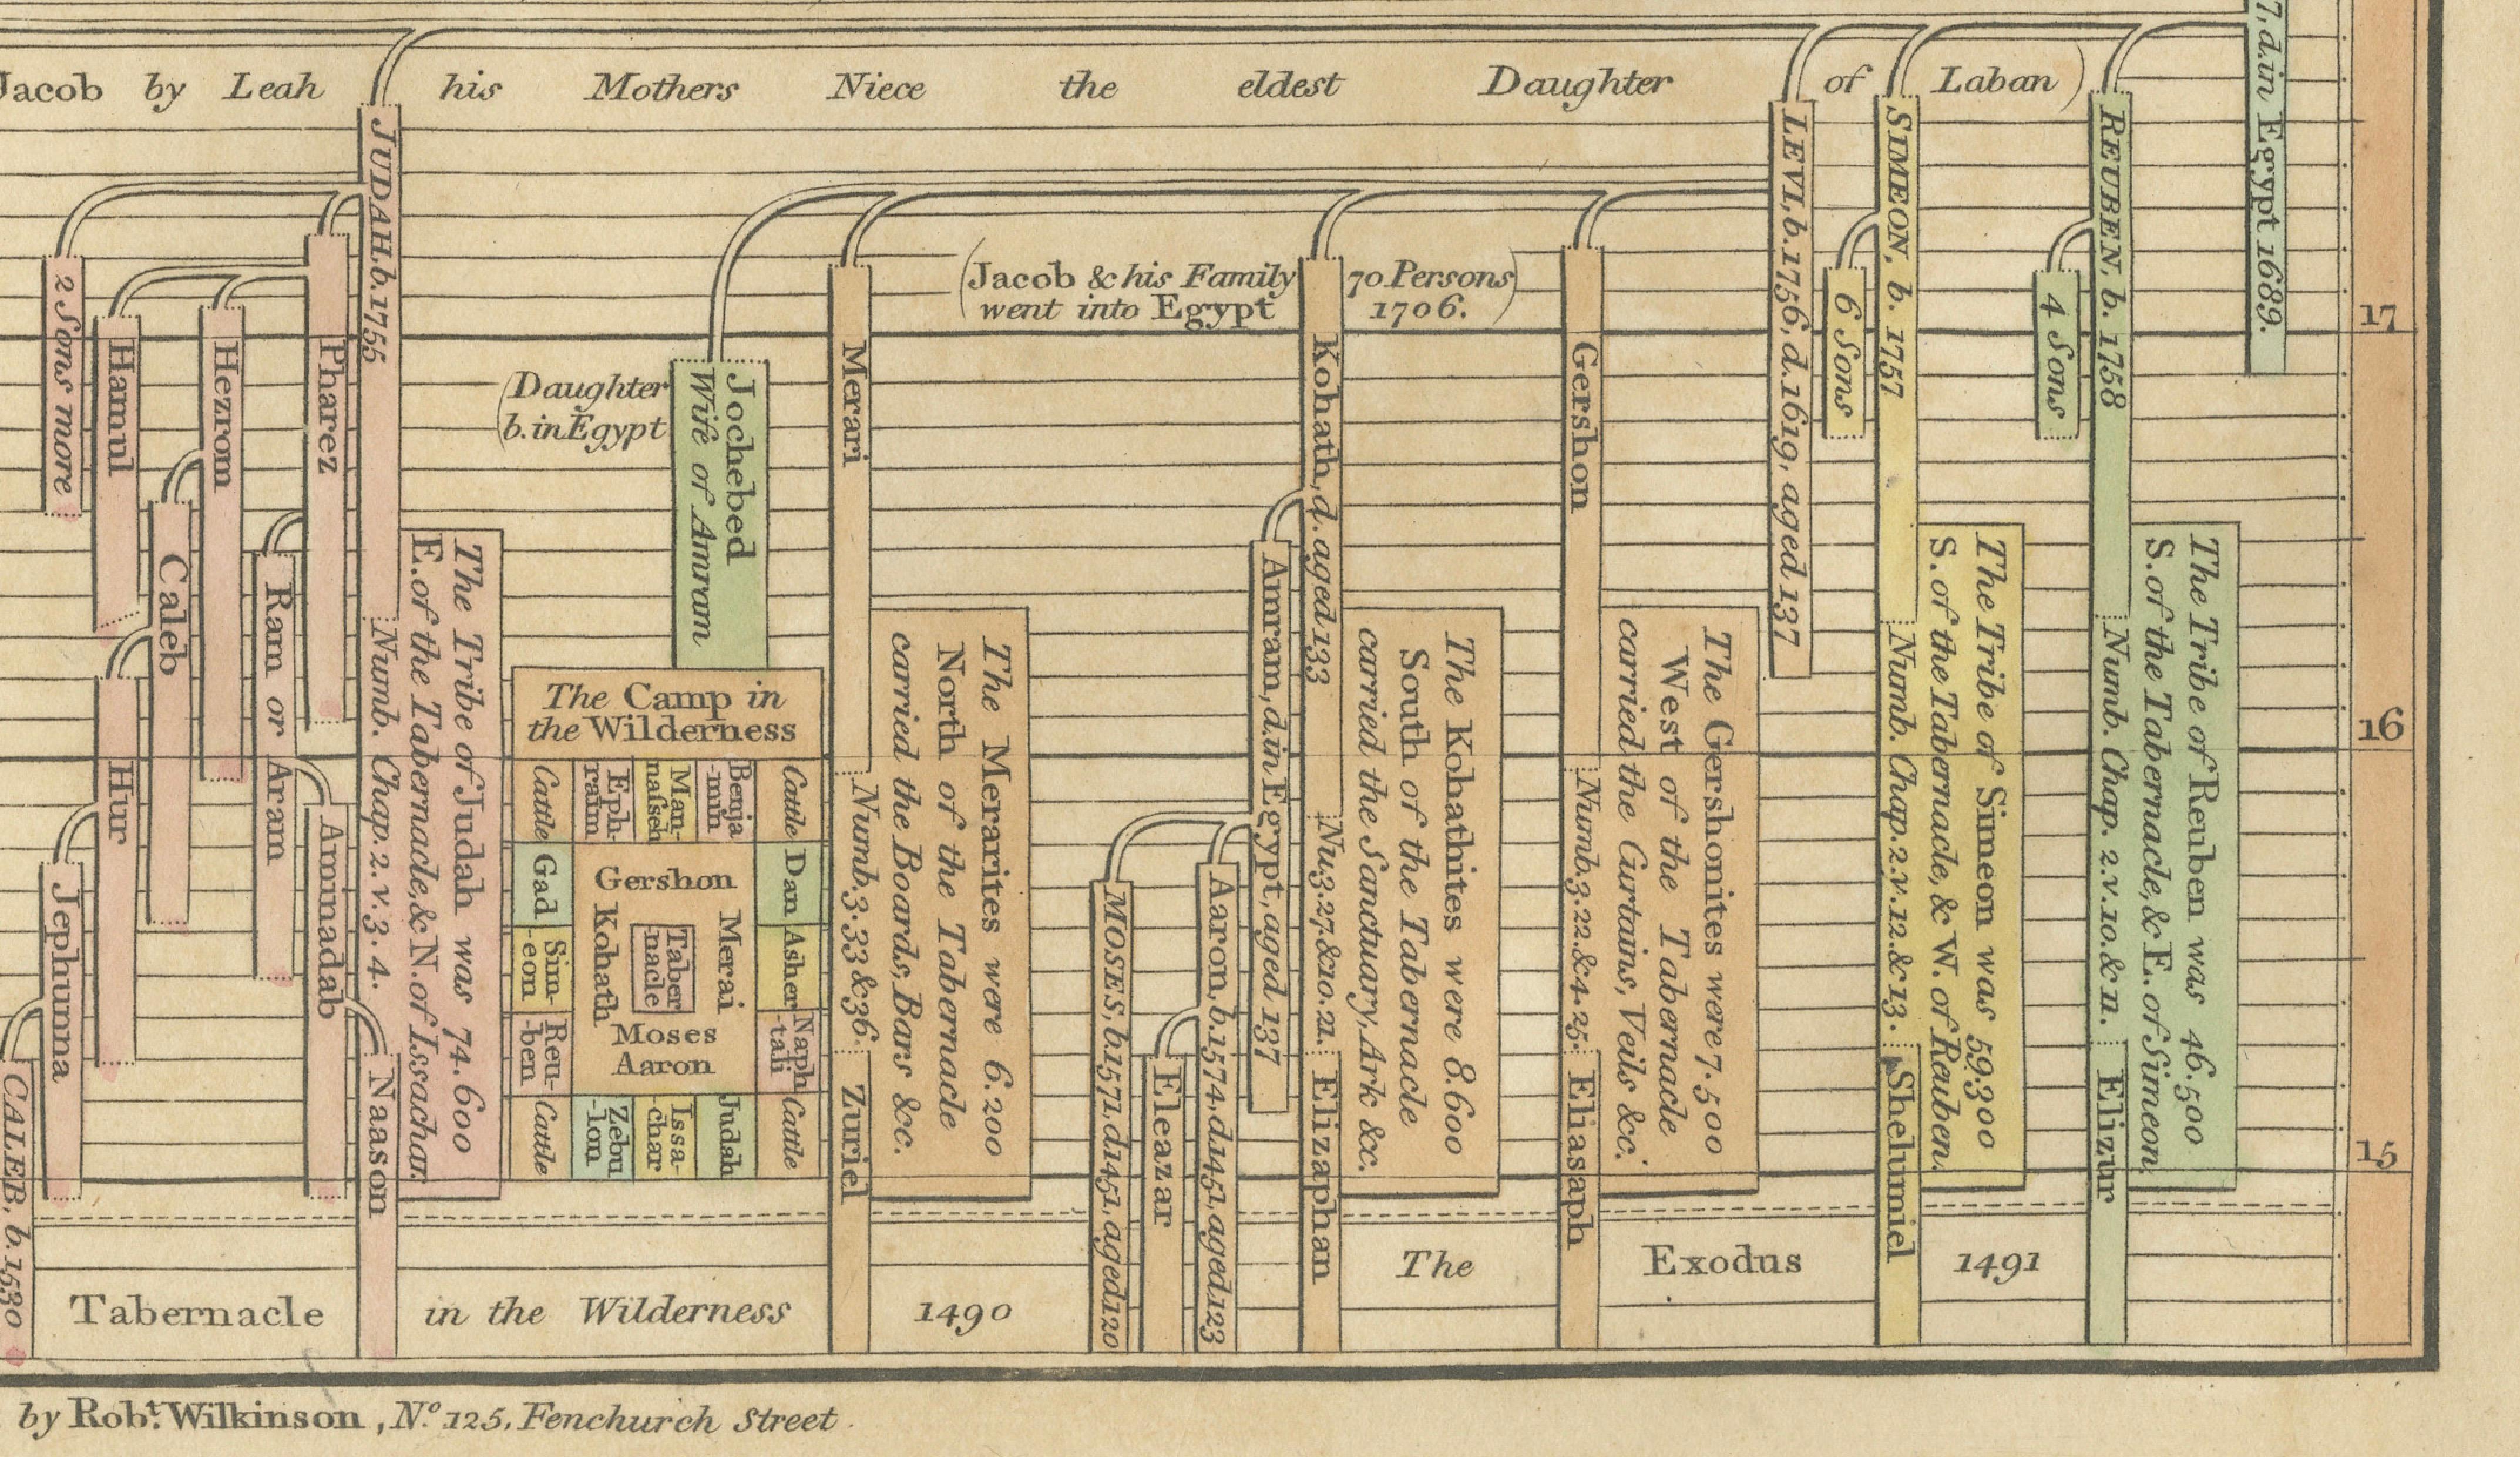 Jacob by Leah his Mothers Niece the eldest Daughter of Laban)
7, d. in Egypt 1689.
JUDAH, b. 1755
LEVI, b. 1756, d. 1619, aged 137
SIMEON, b. 1757
REUBEN, b. 1758
2 Sons more
Hamul
Hezrom
Pharez
(Daughter
b. in Egypt
Jochebed
Wife of Amram
Merari
(Jacob & his Family
went into Egypt
70 Persons)
1706.
Kohath, d. aged 133
Gershon
6 Sons
4 Sons
17
16
15
Caleb
Ram or Aram
Hur
Jephunna
Aminadab
CALEB, b. 1530
Numb. Chap. 2. v. 3. 4.
Naason
The Tribe of Judah was 74.600
E. of the Tabernacle, & N. of Issachar.
The Camp in
the Wilderness
Cattle
Eph-
raim
Man-
naſseh
Benja
-min
Cattle
Gad
Gershon
Dan
Sim-
-eon
Kohath
Taber
-nacle
Merai
Asher
Reu-
-ben
Moses
Aaron
Naph
-tali
Cattle
Zebu
-lon
Issa-
-char
Judah
Cattle
Numb. 3. 33 & 36.
Zuriel
The Merarites were 6.200
North of the Tabernacle
carried the Boards, Bars &c.
MOSES, b. 1571, d. 1451, aged 120
Eleazar
Aaron, b. 1574, d. 1451, aged 123
Amram, d. in Egypt, aged 137
Nu. 3. 27. & 10. 21.
Elizaphan
The Kohathites were 8.600
South of the Tabernacle
carried the Sanctuary, Ark &c.
Numb. 3. 22. & 4. 25.
Eliasaph
The Gershonites were 7.500
West of the Tabernacle
carried the Curtains, Veils &c.
Numb. Chap. 2. v. 12. & 13.
Shelumiel
The Tribe of Simeon was 59.300
S. of the Tabernacle, & W. of Reuben.
Numb. Chap. 2. v. 10. & 11.
Elizur
The Tribe of Reuben was 46.500
S. of the Tabernacle, & E. of Simeon.
The Exodus 1491
Tabernacle in the Wilderness 1490
by Robt. Wilkinson, No. 125, Fenchurch Street.